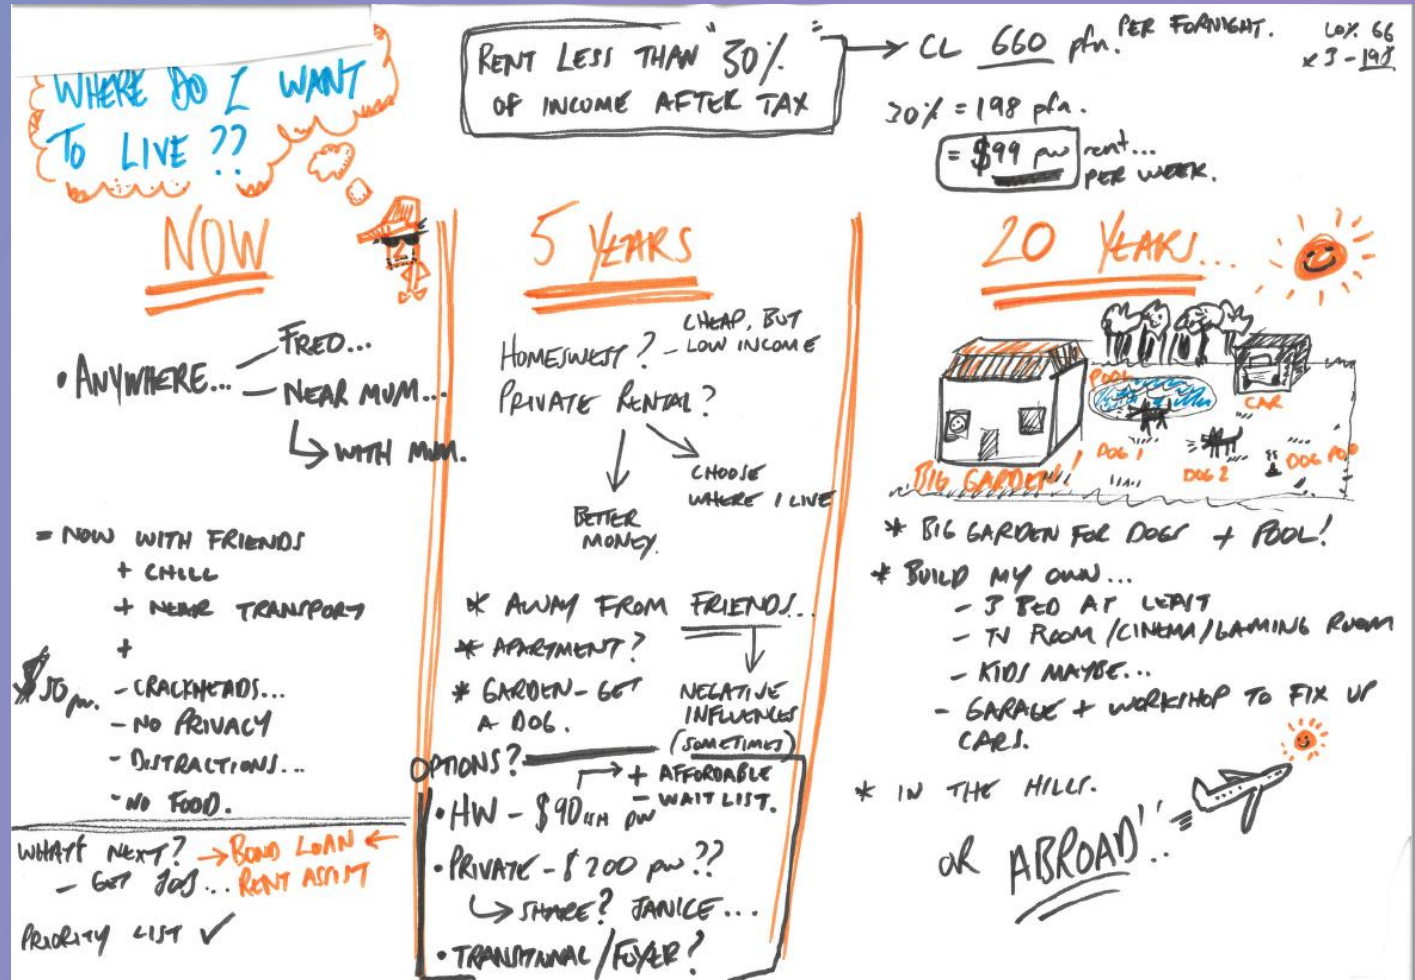 WHERE DO I WANT
TO LIVE??
RENT LESS THAN "30%"
OF INCOME AFTER TAX
CL 660 pfn. PER FORNIGHT.
10% 66
x 3 - 198
30% = 198 pfn.
= $99 pw rent...
PER WEEK.
NOW
• ANYWHERE...
FRED...
NEAR MUM...
WITH MUM.
= NOW WITH FRIENDS
+ CHILL
+ NEAR TRANSPORT
+
$50 pw.
- CRACKHEADS...
- NO PRIVACY
- DISTRACTIONS...
- NO FOOD.
WHAT'S NEXT? → BOND LOAN ←
- GET JOB... RENT ASSIST
PRIORITY LIST ✓
5 YEARS
HOMESWEST? - CHEAP, BUT
LOW INCOME
PRIVATE RENTAL?
BETTER
MONEY.
CHOOSE
WHERE I LIVE
* AWAY FROM FRIENDS...
* APARTMENT?
* GARDEN - GET
A DOG.
NEGATIVE
INFLUENCES
(SOMETIMES)
OPTIONS?
+ AFFORDABLE
- WAIT LIST.
• HW - $90 pw
• PRIVATE - $200 pw??
SHARE? JANICE...
• TRANSITIONAL / FOYER?
20 YEARS...
POOL
CAR
DOG 1
DOG 2
DOG POO
BIG GARDEN!
* BIG GARDEN FOR DOGS + POOL!
* BUILD MY OWN...
- 3 BED AT LEAST
- TV ROOM/CINEMA/GAMING ROOM
- KIDS MAYBE...
- GARAGE + WORKSHOP TO FIX UP
CARS.
* IN THE HILLS.
OR ABROAD!..